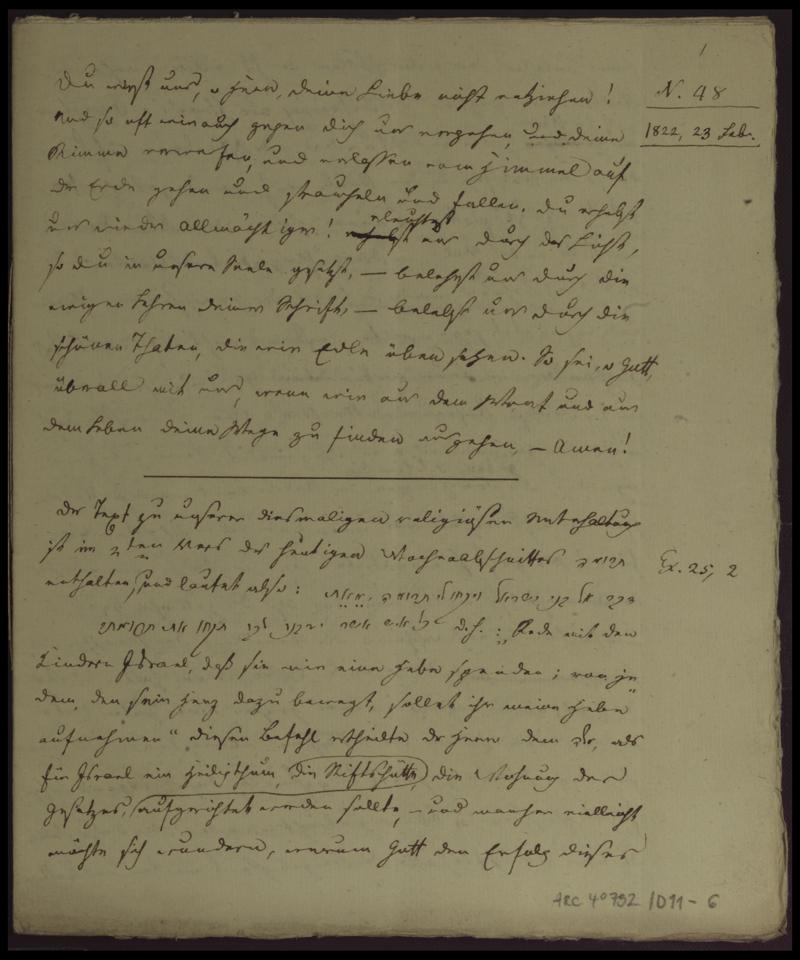 1
N. 48
1822, 23 Feb.
Du wirst uns, o Herr, deine Liebe nicht entziehen!
Und so oft wir auch gegen dich uns vergehen, und deine
Stimme verwerfen, und verlassen vom Himmel auf
der Erde gehen und straucheln und fallen. Du erhebst
uns wieder Allmächtiger! erleuchtest uns durch das Licht,
so du in unsere Seele gesetzt, — belehrst uns durch die
ewigen Lehren deiner Schrift, — belebst uns durch die
schönen Thaten, die wir Edle üben sehen. So sei, o Gott,
überall mit uns, wenn wir aus dem Wort und aus
dem Leben deine Wege zu finden ausgehen, — Amen!
Der Text zu unserer diesmaligen religiösen Unterhaltung
ist im 2ten Vers des heutigen Wochenabschnittes תרומה
Ex. 25, 2
enthalten, und lautet also: דבר אל בני ישראל ויקחו לי תרומה מאת
כל איש אשר ידבנו לבו תקחו את תרומתי d. h.: „Rede mit den
Kindern Israel, daß sie mir eine Hebe spenden; von je
dem, den sein Herz dazu bewegt, sollet ihr meine Hebe
aufnehmen“ diesen Befehl ertheilte der Herr dem, als
für Israel ein Heiligthum, die Stiftshütte, die Wohnung des
Gesetzes, aufgerichtet werden sollte, — und mancher vielleicht
möchte sich wundern, warum Gott den Erfolg dieses
ARC 4° 792 / D11 - 6